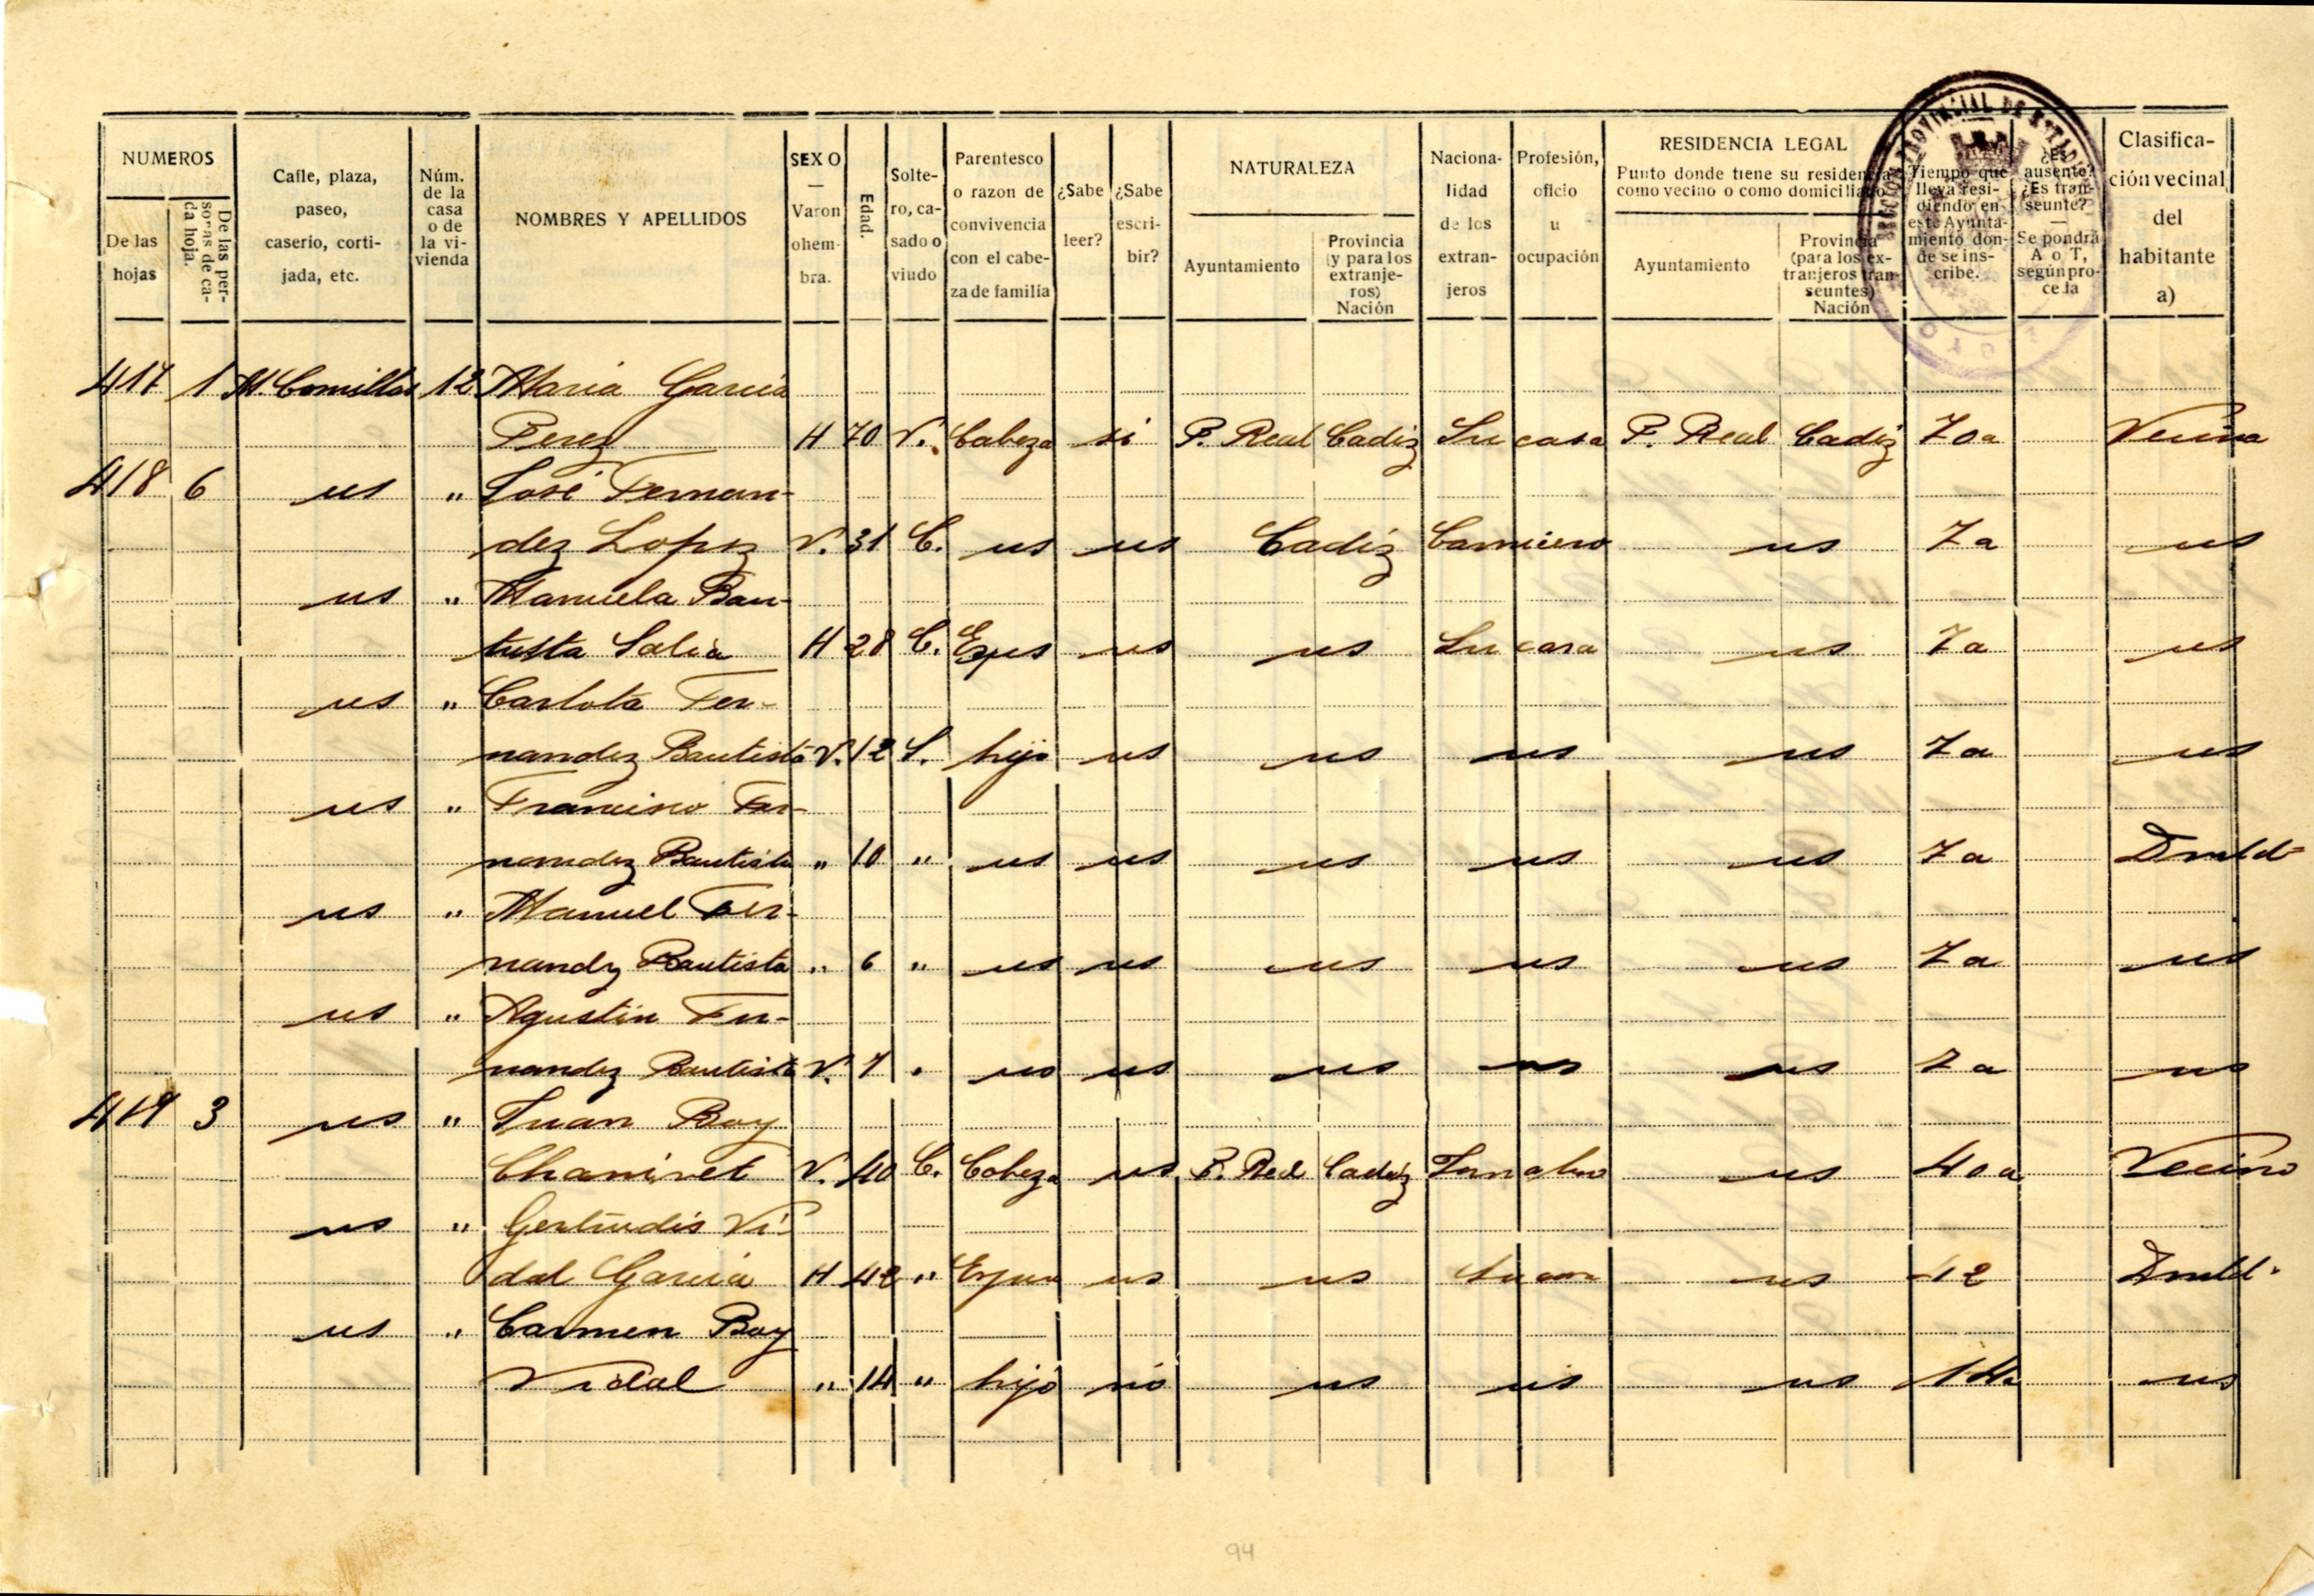 NUMEROS
De las hojas
De las personas de cada hoja.
Calle, plaza, paseo, caserío, cortijada, etc.
Núm. de la casa o de la vivienda
NOMBRES Y APELLIDOS
SEXO — Varon ohembra.
Edad.
Soltero, casado o viudo
Parentesco o razon de convivencia con el cabeza de familia
¿Sabe leer?
¿Sabe escribir?
NATURALEZA
Ayuntamiento
Provincia (y para los extranjeros) Nación
Nacionalidad de los extranjeros
Profesión, oficio u ocupación
RESIDENCIA LEGAL
Punto donde tiene su residencia como vecino o como domiciliado
Ayuntamiento
Provincia (para los extranjeros transeuntes) Nación
Tiempo que lleva residiendo en este Ayuntamiento donde se inscribe.
¿Es ausente? ¿Es transeunte? — Se pondrá A o T, según proceda
Clasificación vecinal del habitante a)
417 1 M. Comillas 12 Maria Garcia
Perez H 70 V. Cabeza si P. Real Cadiz Su casa P. Real Cadiz 70a Vecina
418 6 us " José Fernan-
dez Lopez V. 31 C. us us Cadiz Carnicero us 7a us
us " Manuela Bau-
tista Solia H 28 C. Espes us us Su casa us 7a us
us " Carlota Fer-
nandez Bautista V. 12 S. hijo us us us us 7a us
us " Francisco Fer-
nandez Bautista " 10 " us us us us us 7a Dmld-
us " Manuel Fer-
nandz Bautista " 6 " us us us us us 7a us
us " Agustin Fer-
nandez Bautista V. 7 . us us us us us 7a us
419 3 us " Juan Boy
Chanivet V. 40 C. Cabeza us P. Real Cadiz us 40a Vecino
us " Gertrudis Vi-
dal Garcia H 42 " us us us 42 Dmld.
us " Carmen Boy
Vidal " 14 " hijo no us us us 14a us
94